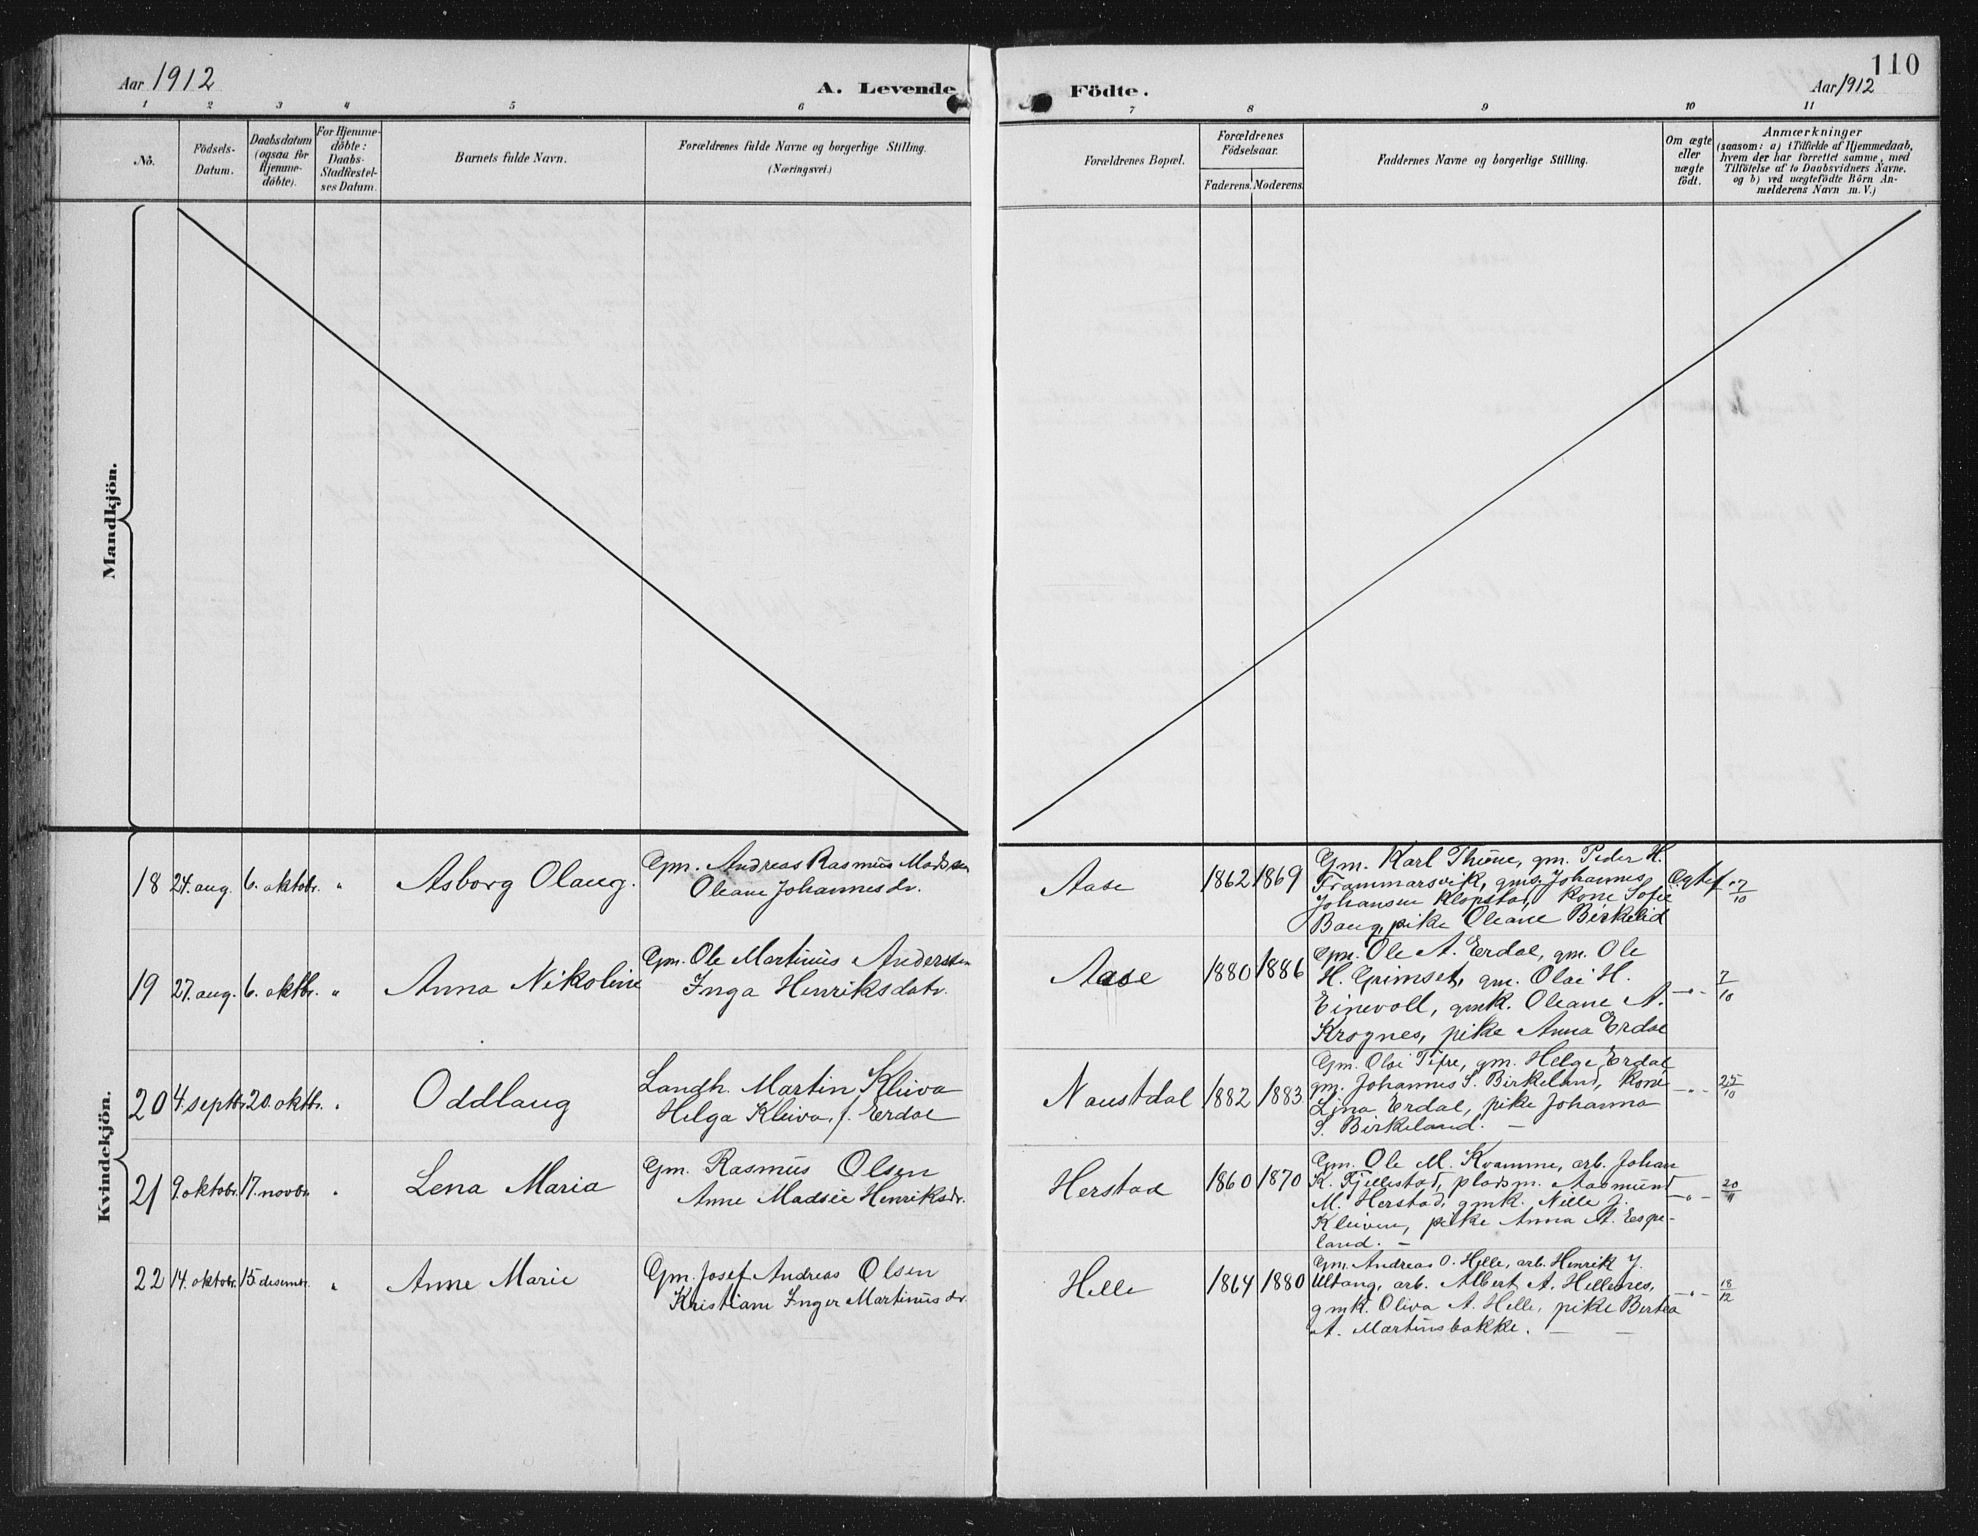 Aar 1912
A. Levende
Födte.
110
Aar 1912
1 2 3 4 5 6 7 8 9 10 11
Nö.
Födsels-
Datum.
Daabsdatum
(ogsaa for
Hjemme-
döbte).
For Hjemme-
döbte:
Daabs-
Stadfæstel-
ses Datum.
Barnets fulde Navn.
Forældrenes fulde Navne og borgerlige Stilling.
(Næringsvei.)
Forældrenes Bopæl.
Forældrenes
Födselsaar.
Faderens. Moderens.
Faddernes Navne og borgerlige Stilling.
Om ægte
eller
uægte
födt.
Anmærkninger
(saasom: a) i Tilfælde af Hjemmedaab,
hvem der har forrettet samme, med
Tilföielse af to Daabsvidners Navne.
og b) ved uægtefödte Börn An-
melderens Navn m. V.)
Mandkjön.
Kvindekjön.
18 24. aug. 6. oktobr. " Asborg Olaug.
Gm. Andreas Rasmus Madssen
Oleane Johannesdr.
Aase 1862 1869
Gm. Karl Thune, gm. Peder H.
Frammarsvik, gms. Johannes
Johansen Klopstad, kone Sofie
Baug, pike Oleane Birkelid
Ægtef. 7/10
19 27. aug. 6. oktbr. " Anna Nikoline
Gm. Ole Martinus Anderssen
Inga Henriksdatr.
Aase 1880 1886
Gm. Ole A. Erdal, gm. Ole
H. Grimset, gm. Olai H.
Einevoll, gmk. Oleane A.
Krognes, pike Anna Erdal
-"- 7/10
20 4. septbr. 20. oktbr. " Oddlaug
Landh. Martin Kleiva
Helga Kleiva, f. Erdal
Naustdal 1882 1883
Gm. Olai Tefre, gm. Helge Erdal
gm. Johannes S. Birkeland, kone
Lina Erdal, pike Johanna
S. Birkeland. -
-"- 25/10
21 9. oktobr. 17. novbr. " Lena Maria
Gm. Rasmus Olsen
Anne Madsie Henriksdr.
Herstad 1860 1870
Gm. Ole M. Kvamme, arb. Johan
K. Fjellestad, pladsm. Aasmund
M. Herstad, gmk. Nille J.
Kleiven, pike Anna A. Espe-
land. -
-"- 20/11
22 14. oktobr. 15 desembr. " Anne Marie
Gm. Josef Andreas Olsen
Kristiane Inger Martinusdr.
Helle 1864 1880
Gm. Andreas O. Helle, arb. Henrik J.
Ultang, arb. Albert A. Hellenes,
gmk. Oliva A. Helle, pike Bertea
A. Martinsbakke. - -
-"- 18/12